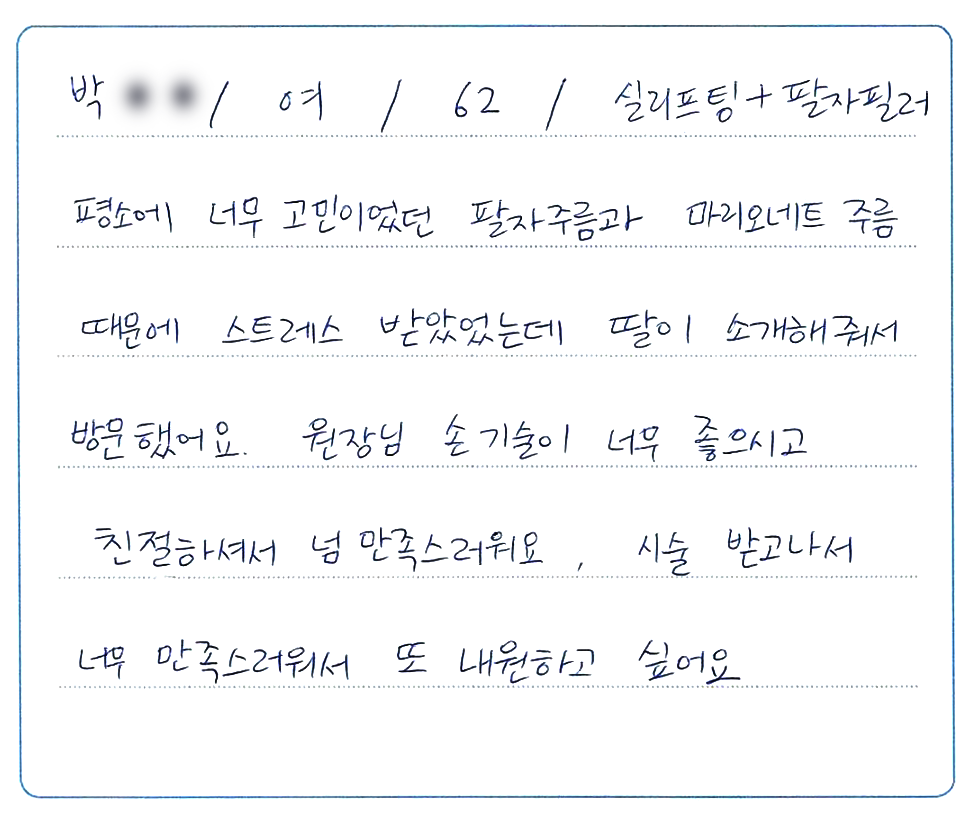 박 / 여 / 62 / 실리프팅+팔자필러
평소에 너무 고민이었던 팔자주름과 마리오네트 주름
때문에 스트레스 받았었는데 딸이 소개해줘서
방문했어요. 원장님 손기술이 너무 좋으시고
친절하셔서 넘 만족스러워요, 시술 받고나서
너무 만족스러워서 또 내원하고 싶어요